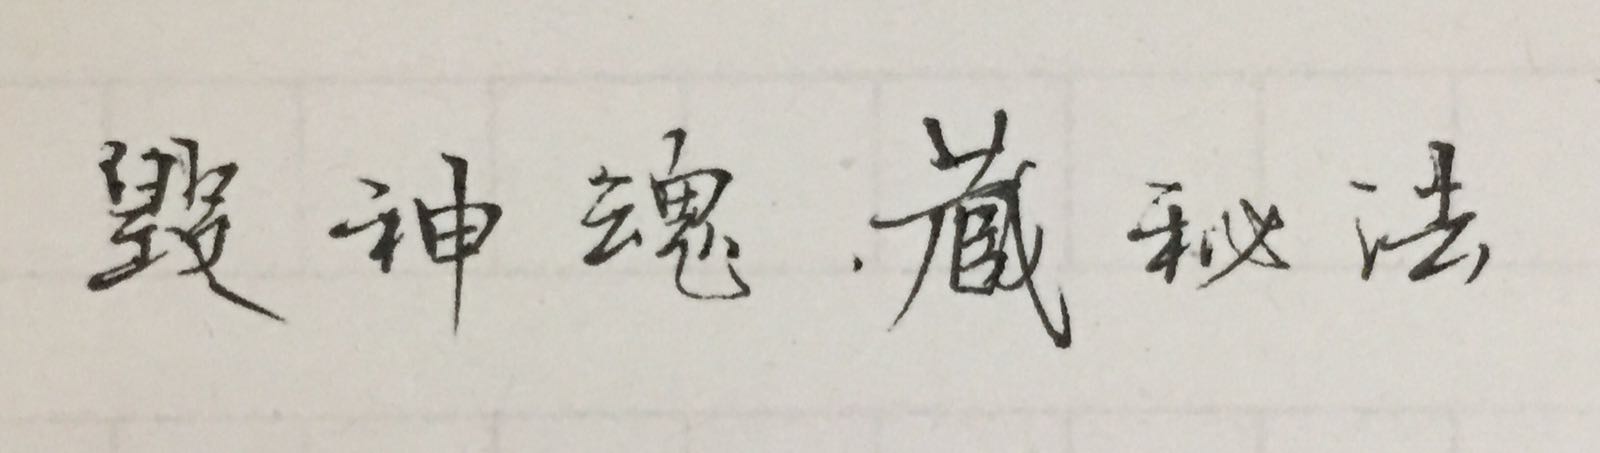 毁神魂.藏秘法